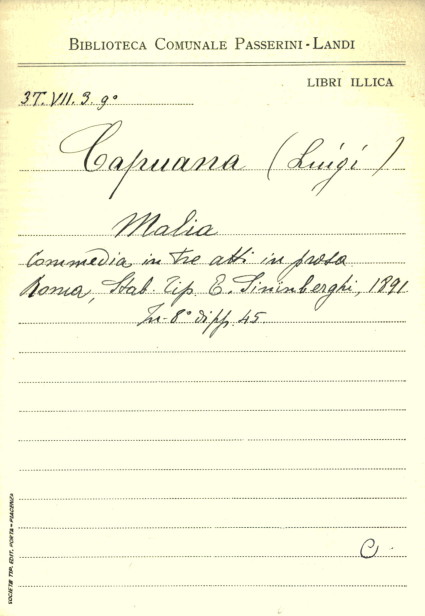 BIBLIOTECA COMUNALE PASSERINI-LANDI
LIBRI ILLICA
3T. VII. 3. 9°
Capuana (Luigi)
Malia
Commedia in tre atti in prosa
Roma, Stab. Tip. E. Sininberghi, 1891
In-8° di pp. 45.
C.
SOCIETÀ TIP. EDIT. PORTA - PIACENZA